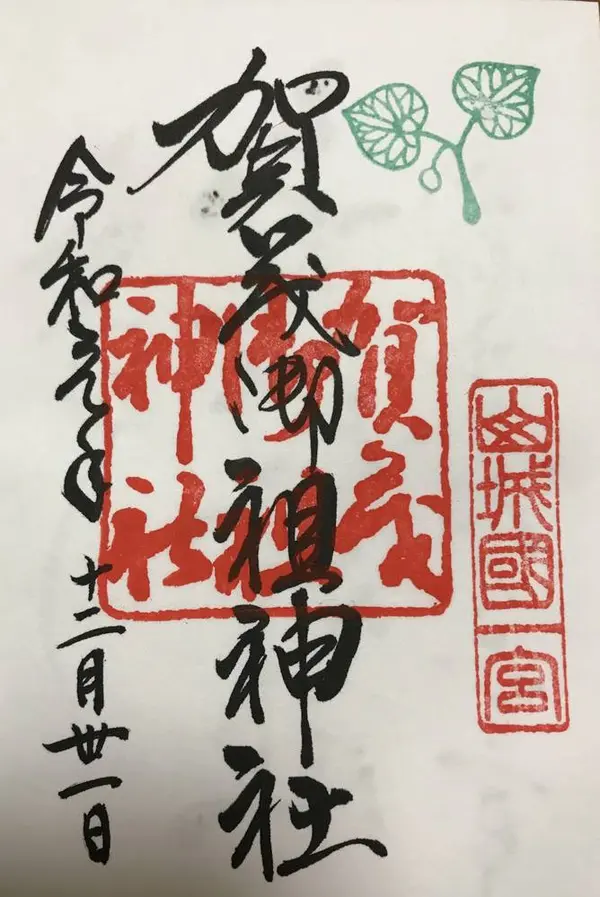 山城國一宮
賀茂御祖神社
賀茂
御祖
神社
令和元年十二月卅一日